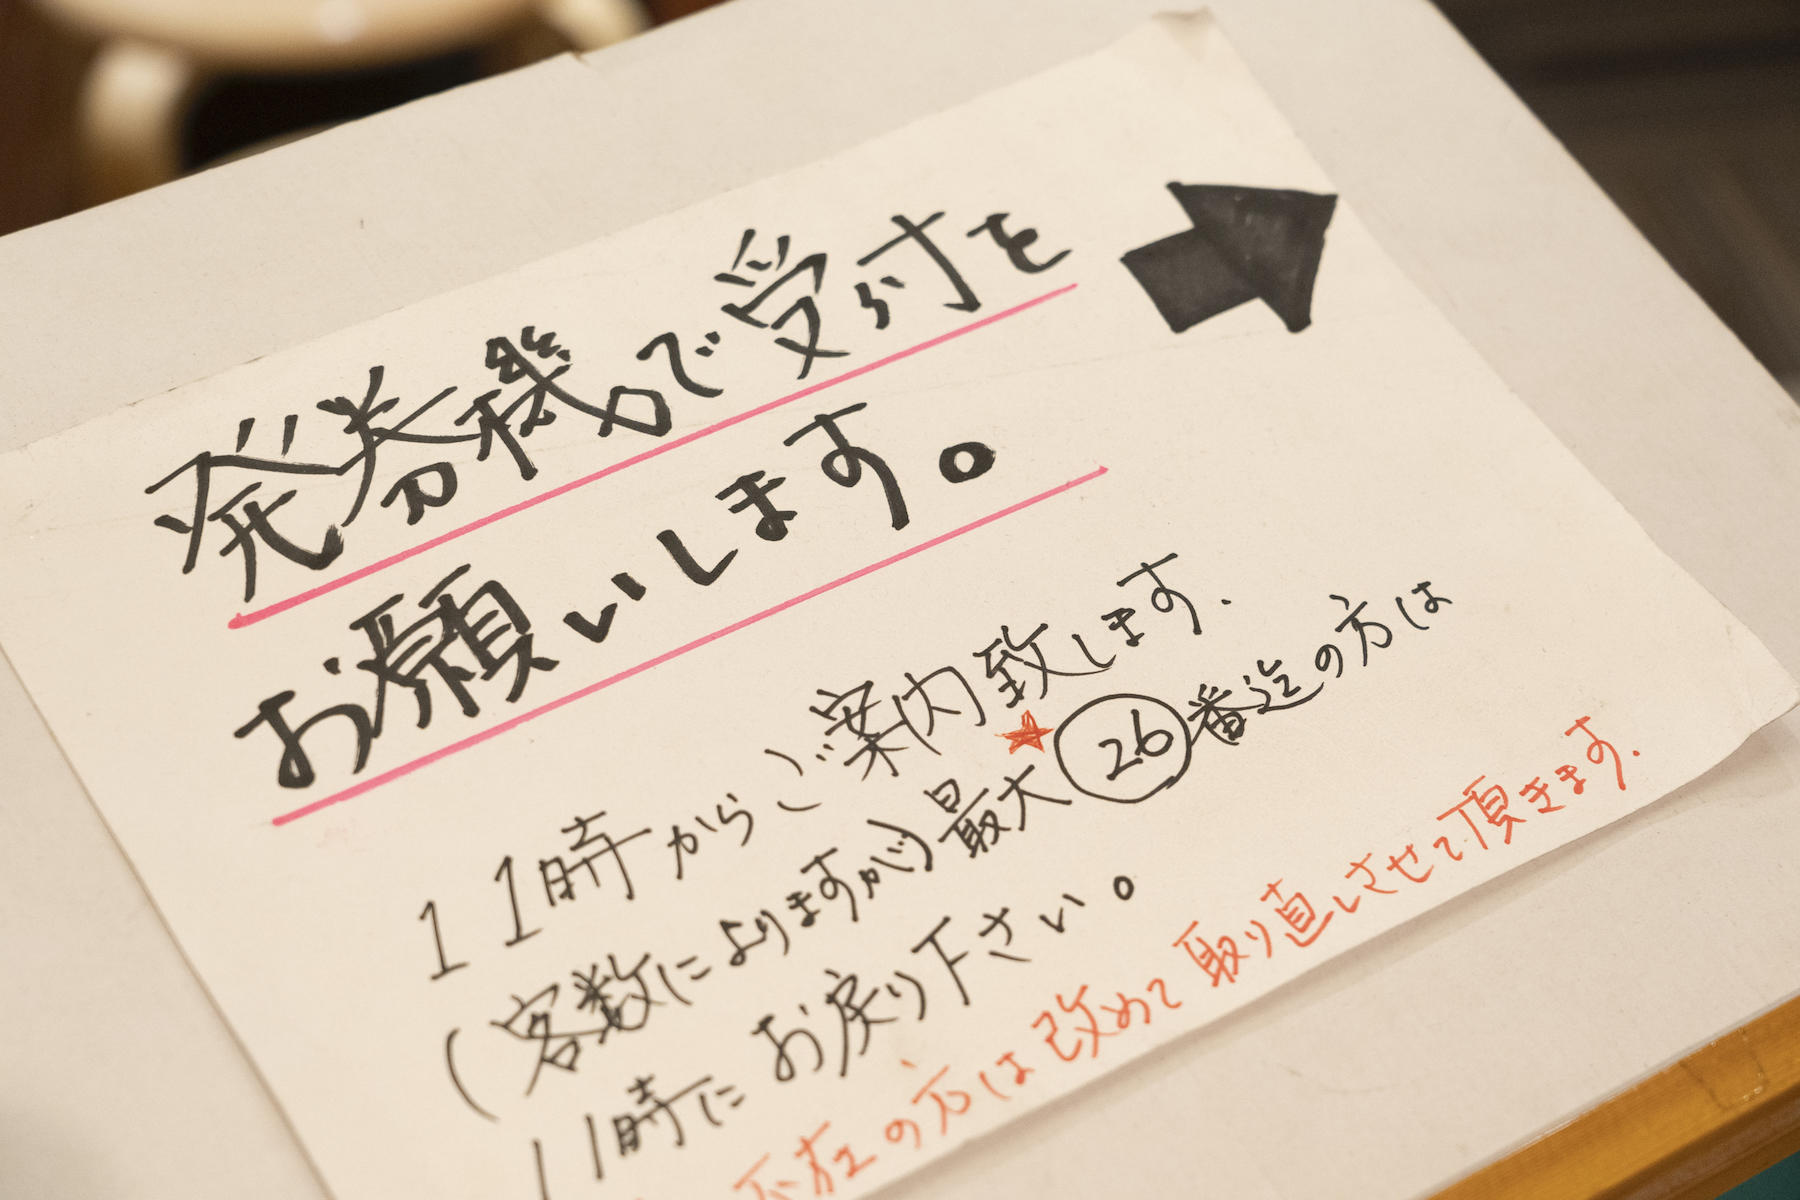 発券機で受付を
お願いします。
11時からご案内致します.
(客数によりますが) 最大 26 番迄の方は
11時にお戻り下さい。
不在の方は改めて取り直しさせて頂きます.